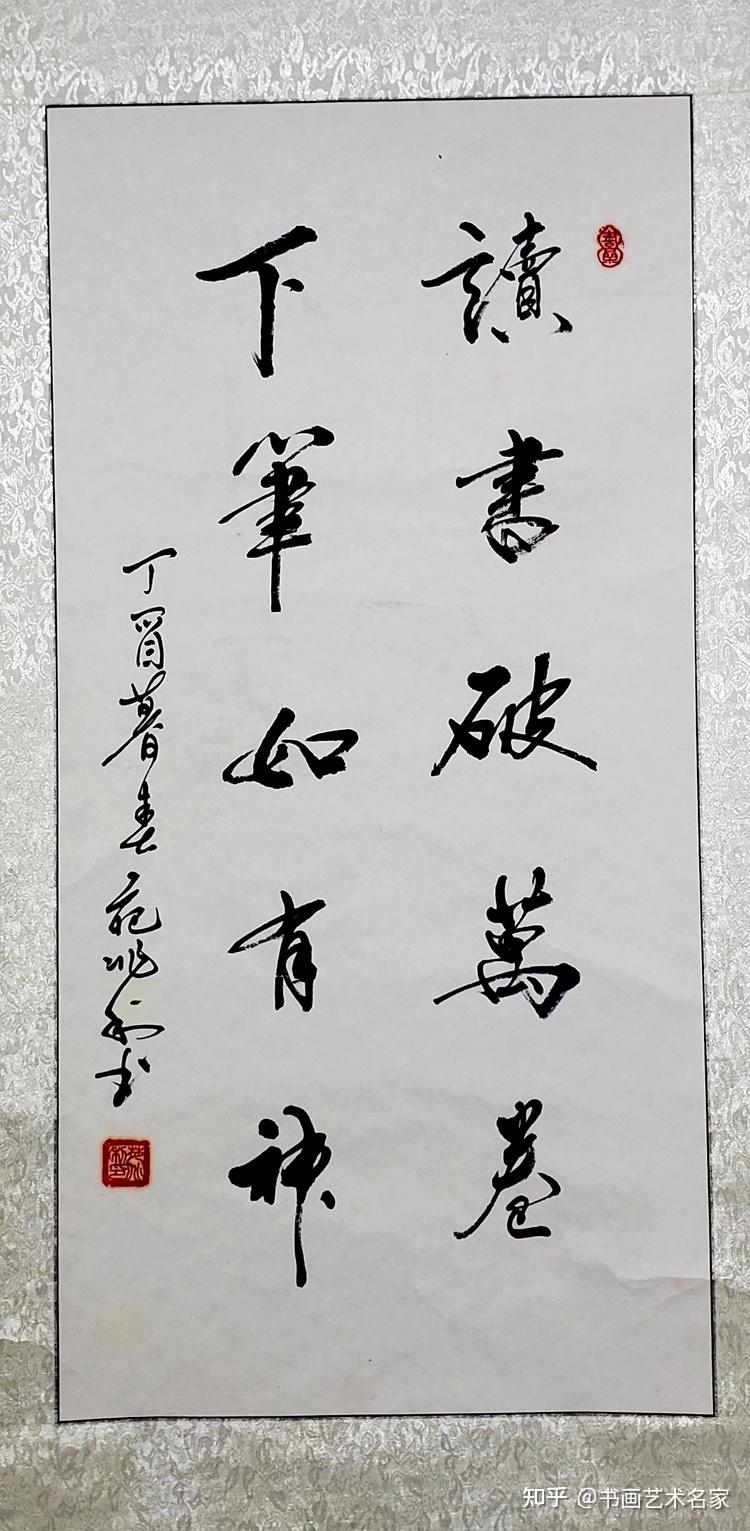 讀書破萬卷
下筆如有神
丁酉暮春
知乎 @书画艺术名家